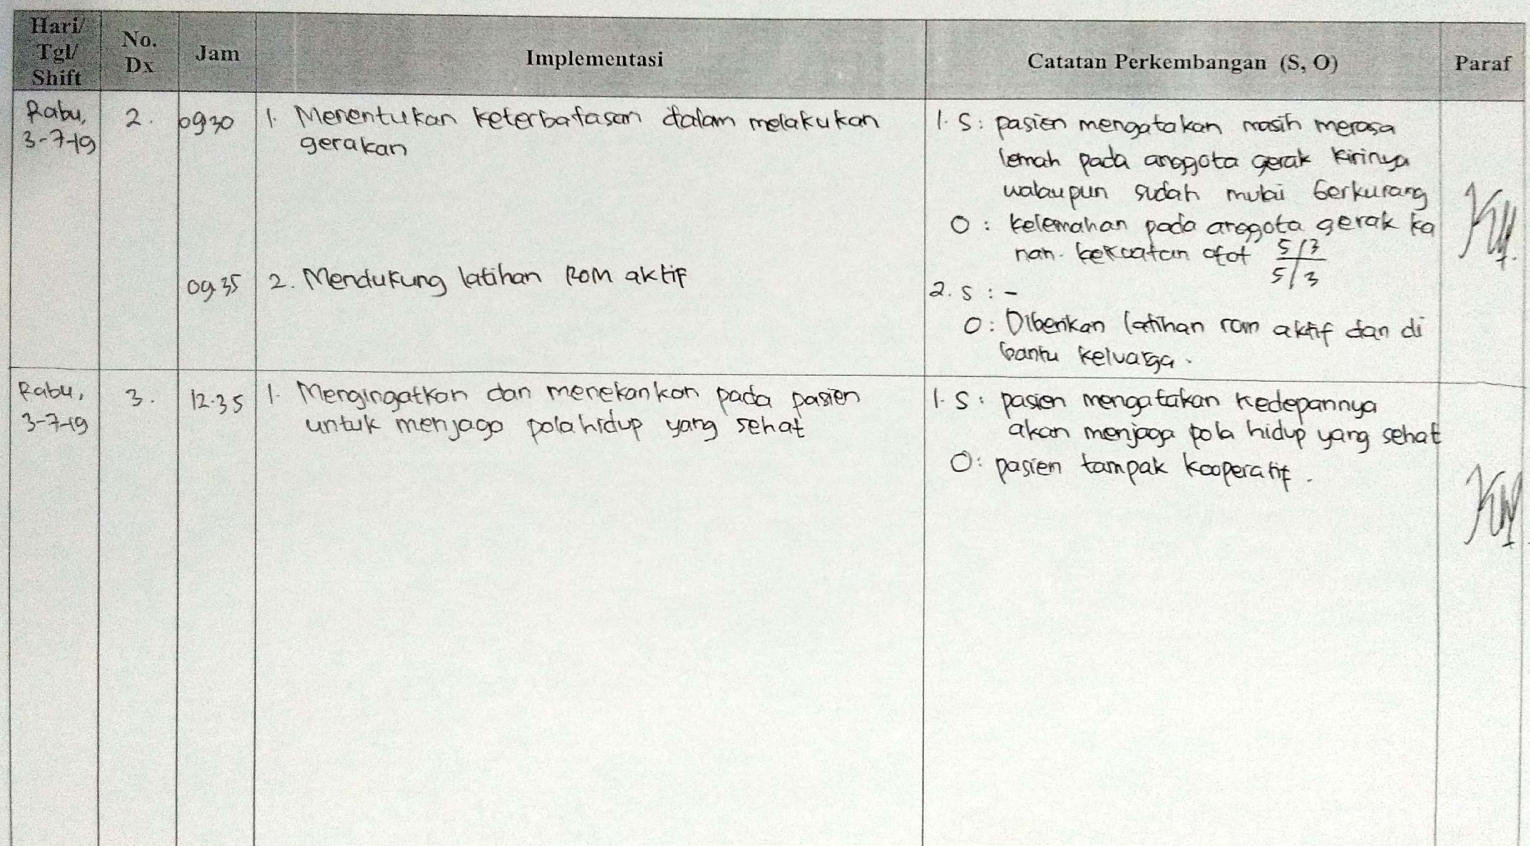 Hari/
Tgl/
Shift
No.
Dx
Jam
Implementasi
Catatan Perkembangan (S, O)
Paraf
Rabu,
3-7-19
2.
0930
1. Menentukan keterbatasan dalam melakukan
gerakan
1. S: pasien mengatakan masih merasa
lemah pada anggota gerak kirinya
walaupun sudah mulai berkurang
O: kelemahan pada anggota gerak ka
nan. kekuatan otot 5/3
5/3
0935
2. Mendukung latihan ROM aktif
2. S : -
O: Diberikan latihan rom aktif dan di
bantu keluarga.
Rabu,
3-7-19
3.
12.35
1. Mengingatkan dan menekankan pada pasien
untuk menjaga pola hidup yang sehat
1. S: pasien mengatakan kedepannya
akan menjaga pola hidup yang sehat
O: pasien tampak kooperatif.